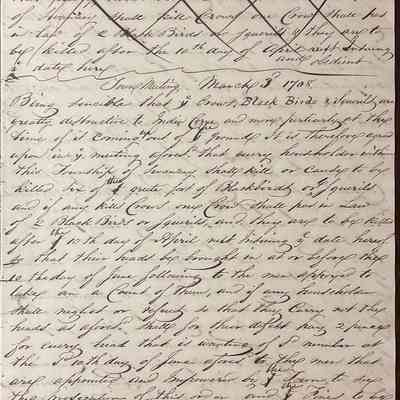 of Swanzey shall kill one Crow shall pas
in Law of 2 Black Birds or squerils & they are to
be killed after the 10th day of April next Insuing
ye date here
Town Meeting March 8 1708
Being sencible that ye Crows, Black Birds & Squerils are
greatly destructive to Indin Corn and more perticulerly at the
time of it Coming out of ye ground It is therefore agreed
upon in ye meeting afores that every householder within
this Township of Swanzey Shall kill or Cause to be
killed six of the sort of Blackbirds or squerils
and if any kill Crows one Crow shall pas in Law
of 2 Black Birds or squerils, and they are to be killed
after the 10th day of April next Insuing ye date hereof
& that their heads be brought in at or before the
10 the day of June following to the men appoyntd to
take an a Count of them, and if any householder
shall neglect or refuse so that they Carry not the
heads as afores Shall for their defalt pay 2 pence
for every head that is wanting of Sd number at
the Sd 10th day of June afores to the men that
are appointed and Impowered by the Town to
the of this order and